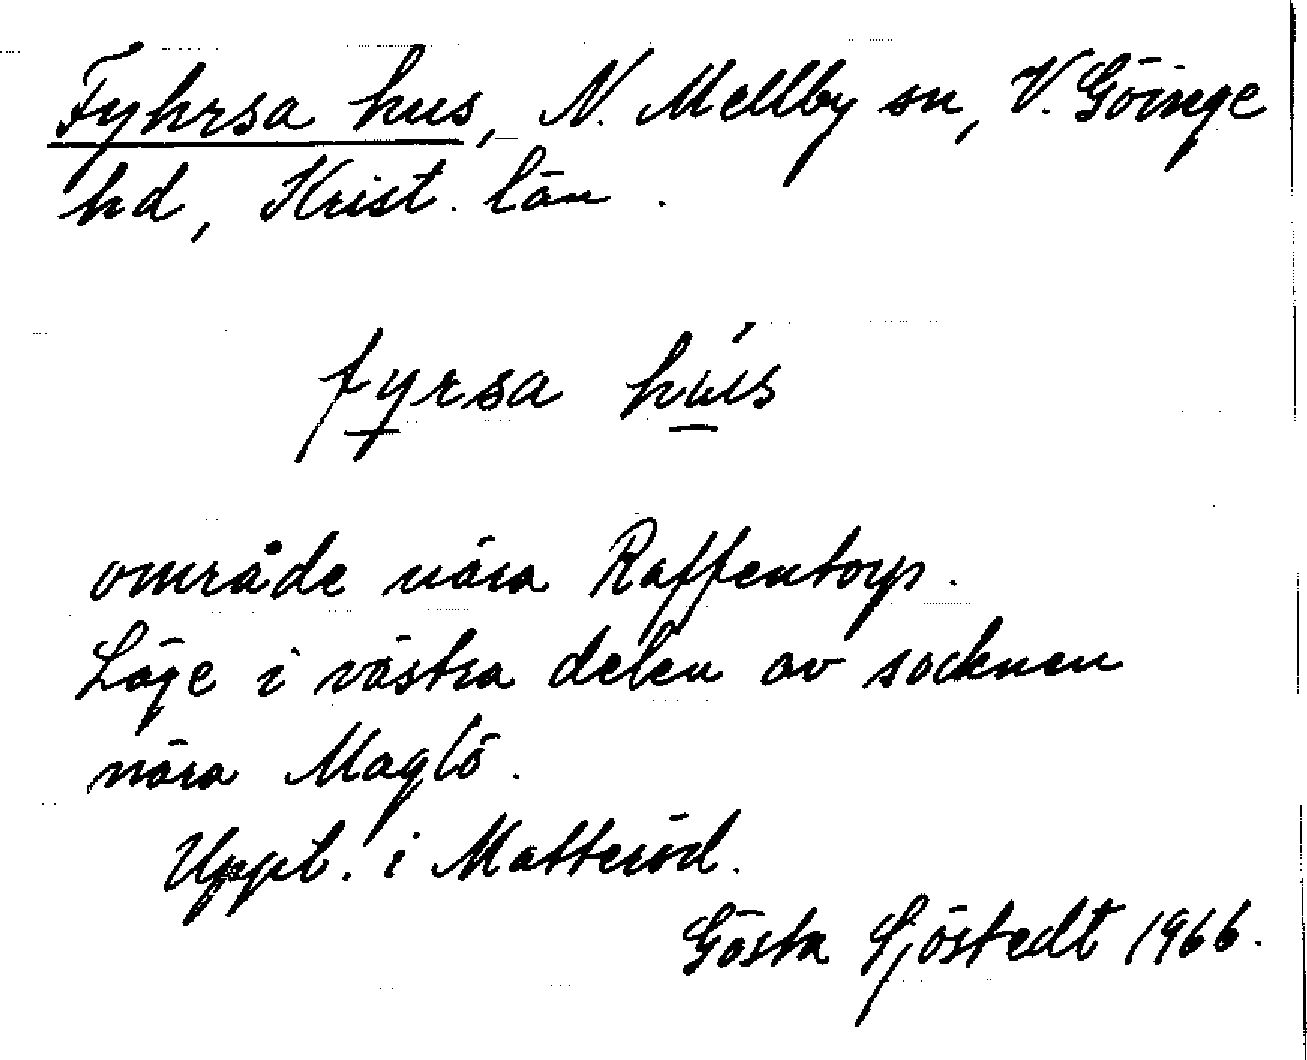 Fyhrsa hus, N. Mellby sn, V. Göinge
hd, Krist. län.
fyrsa hús
område nära Raffentorp.
Läge i västra delen av socknen
nära Maglö.
Uppl. i Matteröd.
Gösta Sjöstedt 1966.